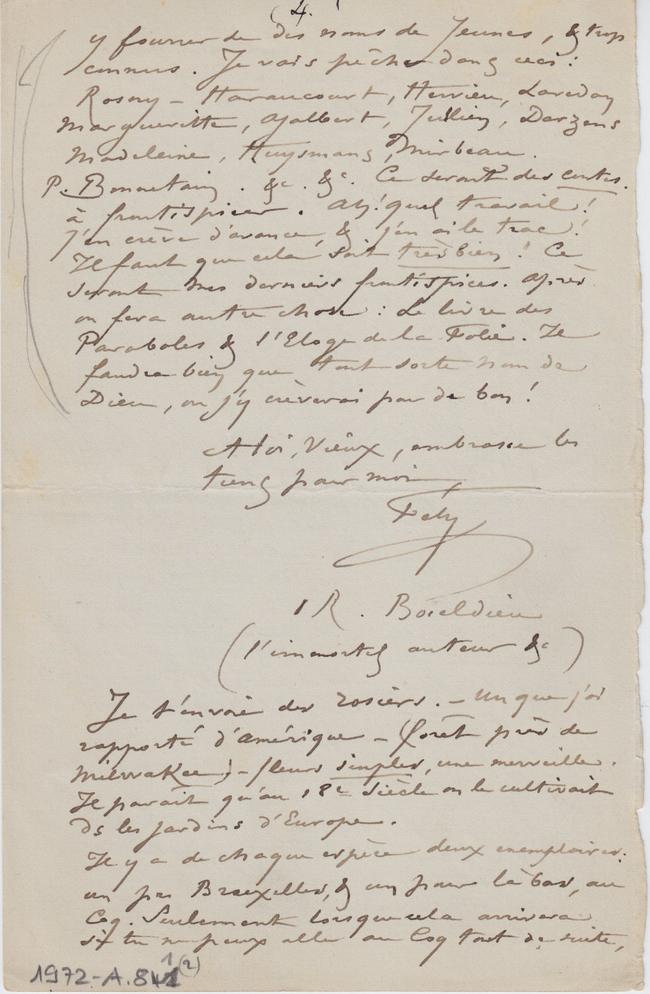 (4.
y fourrer de des noms de Jeunes, & trop
connus. Je vais pêcher dans ceci :
Rosny – Haraucourt, Hervieu, Lavedan
Margueritte, Ajalbert, Jullien, Darzens
Madeleine, Huysmans, Mirbeau.
P. Bonnetain. &c. &c. Ce seront des contes
à frontispices. Ah! quel travail!
J'en crève d'avance, & j'en ai le trac!
Il faut que cela soit très bien! Ce
seront mes derniers frontispices. Après
on fera autre chose : Le livre des
Paraboles & l'Eloge de la Folie. Il
faudra bien que tout sorte nom de
Dieu, ou j'y crèverai pour de bon!
A toi, Vieux, embrasse les
tiens pour moi
Fély
1 R. Boieldieu
(l'immortel auteur &c)
Je t'envoie des rosiers. – Un que j'ai
rapporté d'Amérique – (forêt près de
Milwakee) – fleurs simples, une merveille.
Il parait qu'au 18e siècle on le cultivait
ds les jardins d'Europe.
Il y a de chaque espèce deux exemplaires:
un pr Bruxelles, & un pour là bas, au
Coq. Seulement lorsque cela arrivera
si tu ne peux aller au Coq tout de suite,
1972-A.841(2)